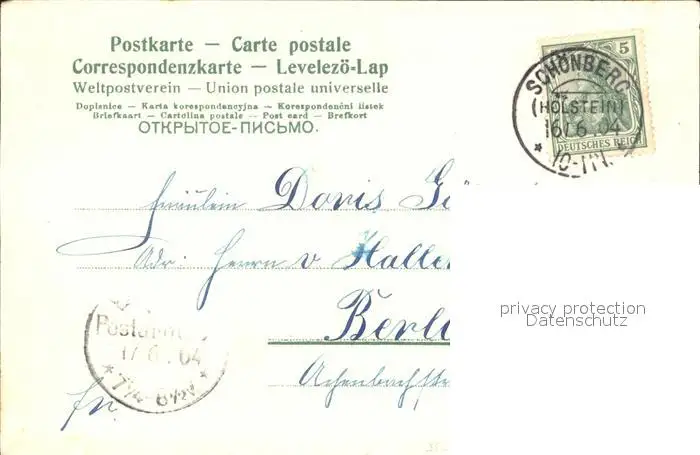 Postkarte — Carte postale
Correspondenzkarte — Levelező-Lap
Weltpostverein — Union postale universelle
Dopisnice — Karta korespondencyjna — Korespondenční lístek
Briefkaart — Cartolina postale — Post card — Brefkort
ОТКРЫТОЕ-ПИСЬМО.
5
SCHÖNBERG
(HOLSTEIN)
16/6.04
* 10-11V.
DEUTSCHES REICH
Fräulein Doris
Adr: Herrn v Halle
Berli
privacy protection
Datenschutz
17.6.04
*7¼-8½V*
Achenbachstr
fr.